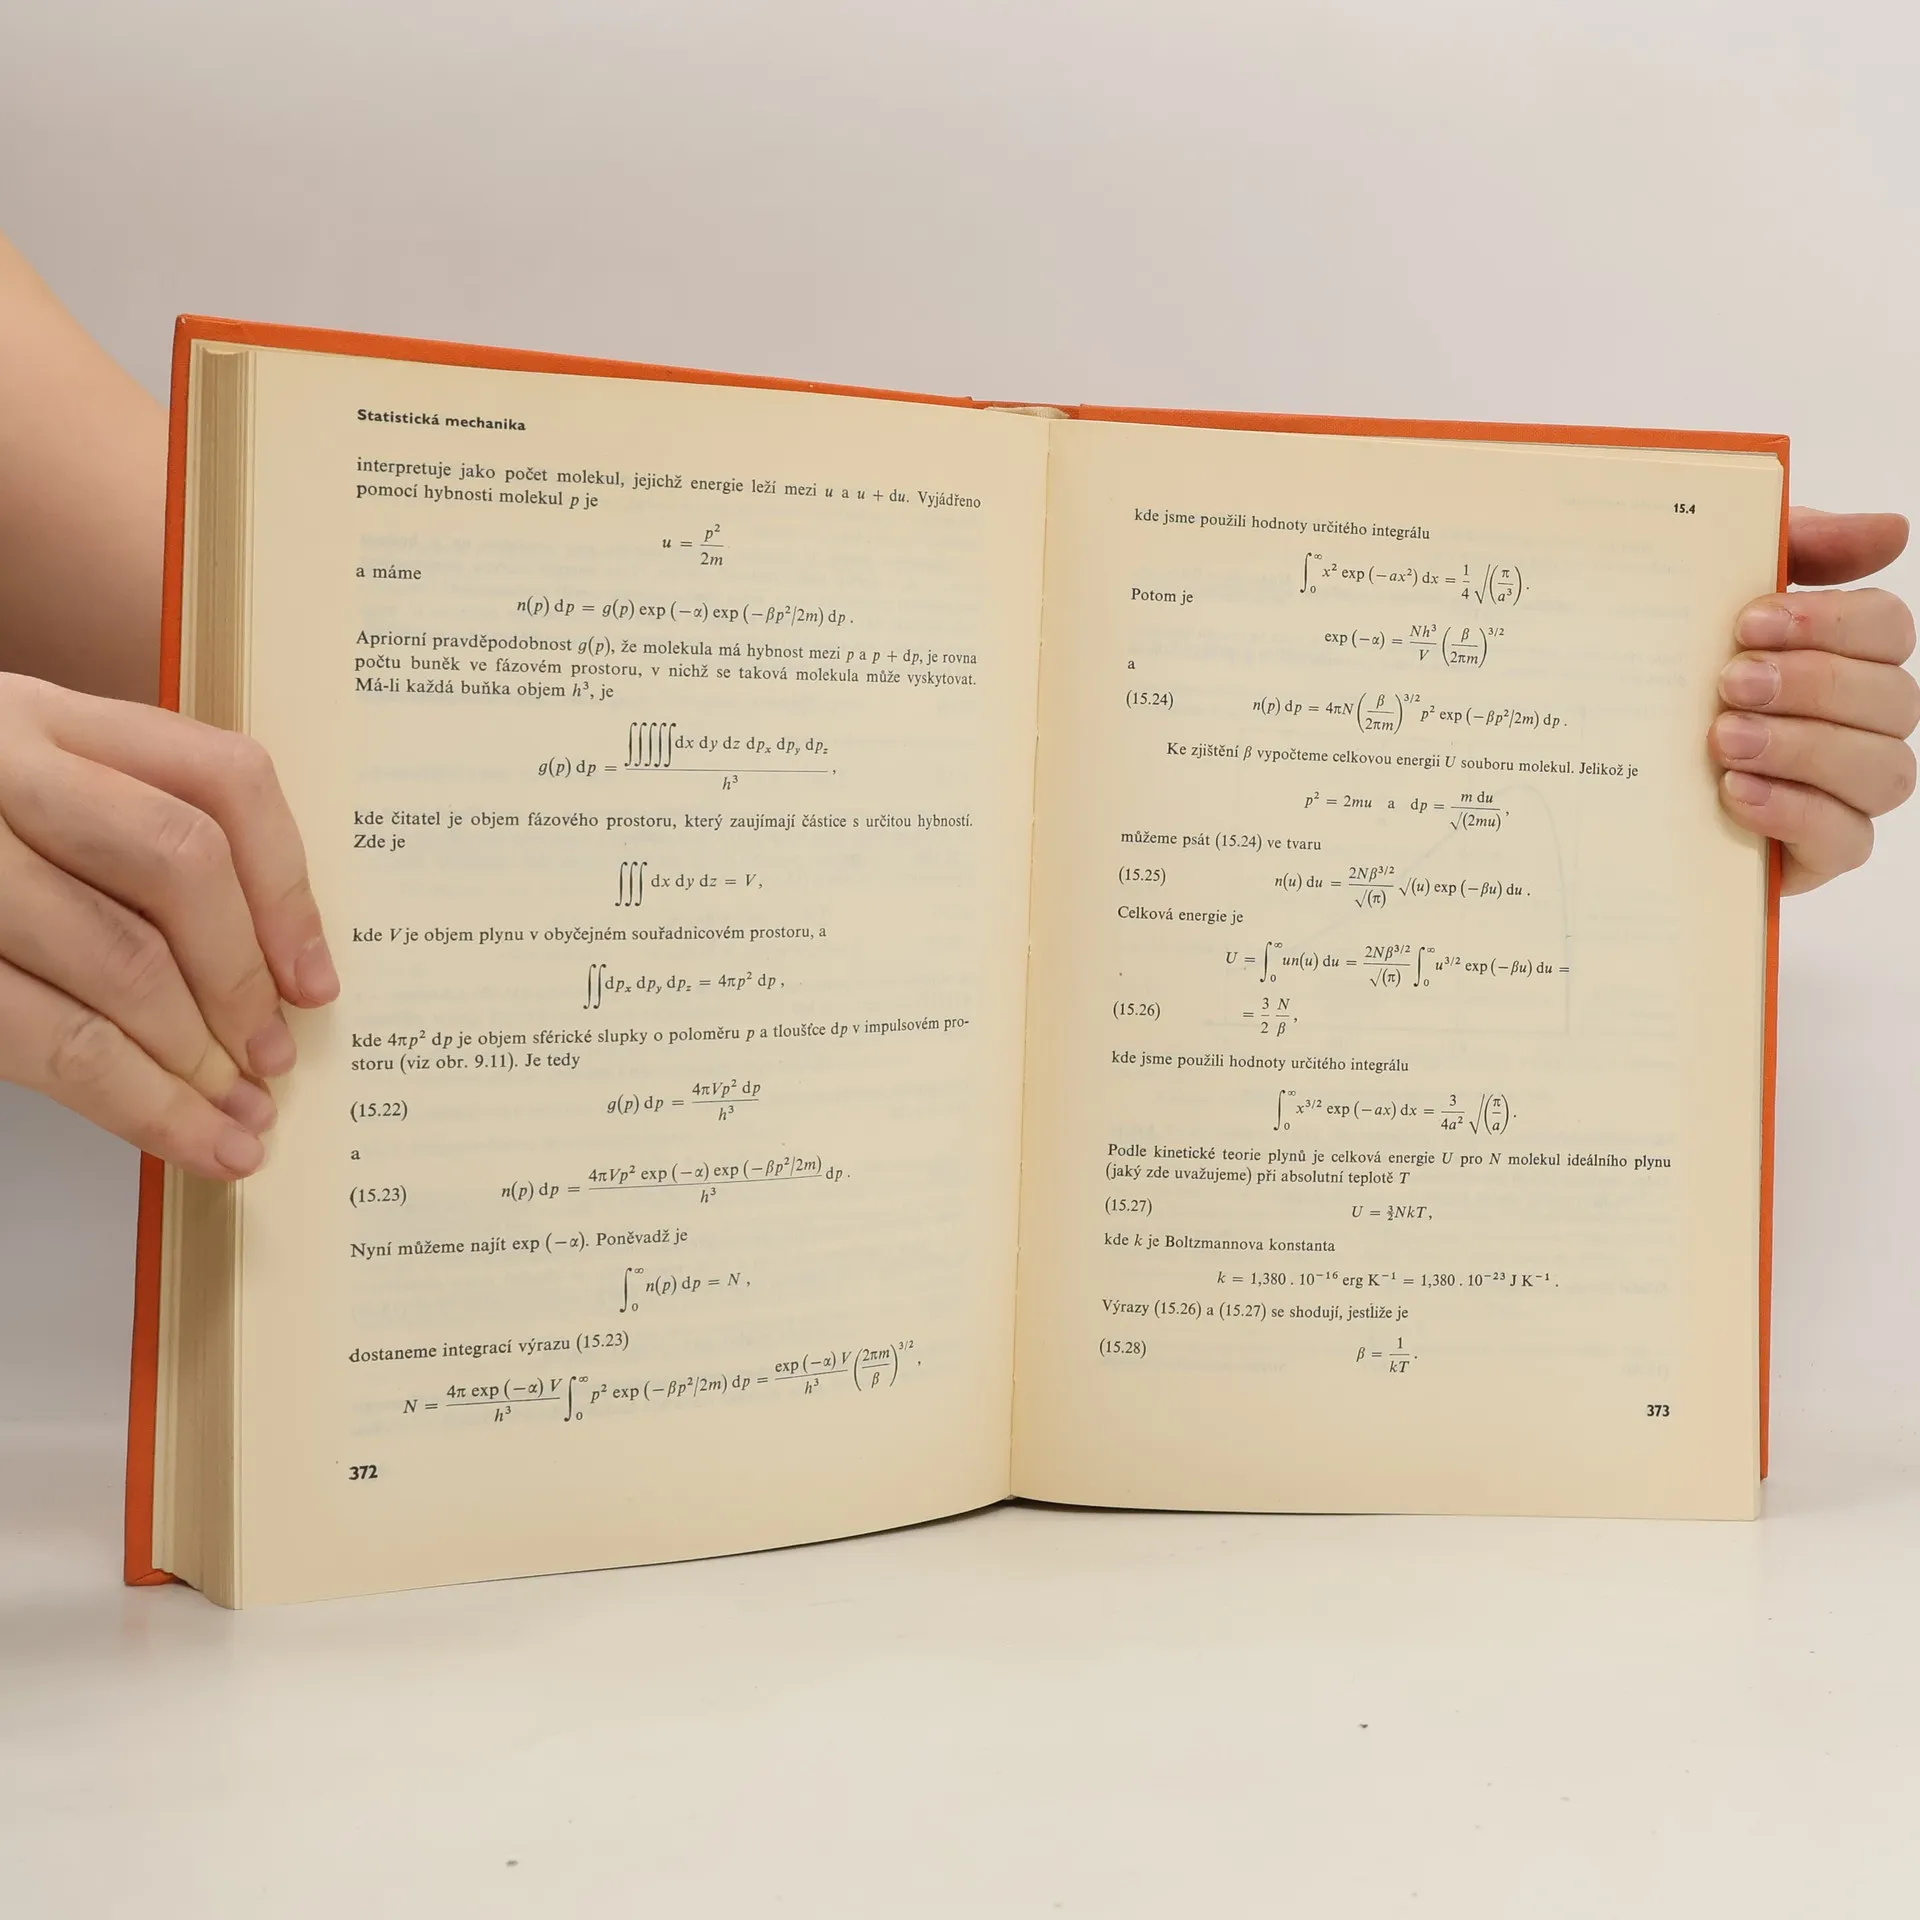 Statistická mechanika
interpretuje jako počet molekul, jejichž energie leží mezi u a u + du. Vyjádřeno
pomocí hybnosti molekul p je
u = p²/2m
a máme
n(p) dp = g(p) exp (−α) exp (−βp²/2m) dp .
Apriorní pravděpodobnost g(p), že molekula má hybnost mezi p a p + dp, je rovna
počtu buněk ve fázovém prostoru, v nichž se taková molekula může vyskytovat.
Má-li každá buňka objem h³, je
g(p) dp = ∫∫∫∫∫∫ dx dy dz dpₓ dp_y dp_z / h³ ,
kde čitatel je objem fázového prostoru, který zaujímají částice s určitou hybností.
Zde je
∫∫∫ dx dy dz = V,
kde V je objem plynu v obyčejném souřadnicovém prostoru, a
∫∫ dpₓ dp_y dp_z = 4πp² dp ,
kde 4πp² dp je objem sférické slupky o poloměru p a tloušťce dp v impulsovém pro-
storu (viz obr. 9.11). Je tedy
(15.22) g(p) dp = 4πVp² dp / h³
a
(15.23) n(p) dp = 4πVp² exp (−α) exp (−βp²/2m) / h³ dp .
Nyní můžeme najít exp (−α). Poněvadž je
∫₀^∞ n(p) dp = N ,
dostaneme integrací výrazu (15.23)
N = 4π exp (−α) V / h³ ∫₀^∞ p² exp (−βp²/2m) dp = exp (−α) V / h³ (2πm/β)^3/2 ,
372
15.4
kde jsme použili hodnoty určitého integrálu
∫₀^∞ x² exp (−ax²) dx = 1/4 √(π/a³) .
Potom je
exp (−α) = Nh³/V (β/2πm)^3/2
a
(15.24) n(p) dp = 4πN (β/2πm)^3/2 p² exp (−βp²/2m) dp .
Ke zjištění β vypočteme celkovou energii U souboru molekul. Jelikož je
p² = 2mu a dp = m du / √(2mu) ,
můžeme psát (15.24) ve tvaru
(15.25) n(u) du = 2Nβ^3/2 / √(π) √(u) exp (−βu) du .
Celková energie je
U = ∫₀^∞ un(u) du = 2Nβ^3/2 / √(π) ∫₀^∞ u^3/2 exp (−βu) du =
(15.26) = 3/2 N/β ,
kde jsme použili hodnoty určitého integrálu
∫₀^∞ x^3/2 exp (−ax) dx = 3/4a² √(π/a) .
Podle kinetické teorie plynů je celková energie U pro N molekul ideálního plynu
(jaký zde uvažujeme) při absolutní teplotě T
(15.27) U = 3/2 NkT,
kde k je Boltzmannova konstanta
k = 1,380 . 10⁻¹⁶ erg K⁻¹ = 1,380 . 10⁻²³ J K⁻¹ .
Výrazy (15.26) a (15.27) se shodují, jestliže je
(15.28) β = 1/kT .
373